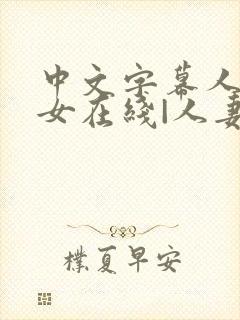 中文字幕人
女在线|人妻
朴夏早安